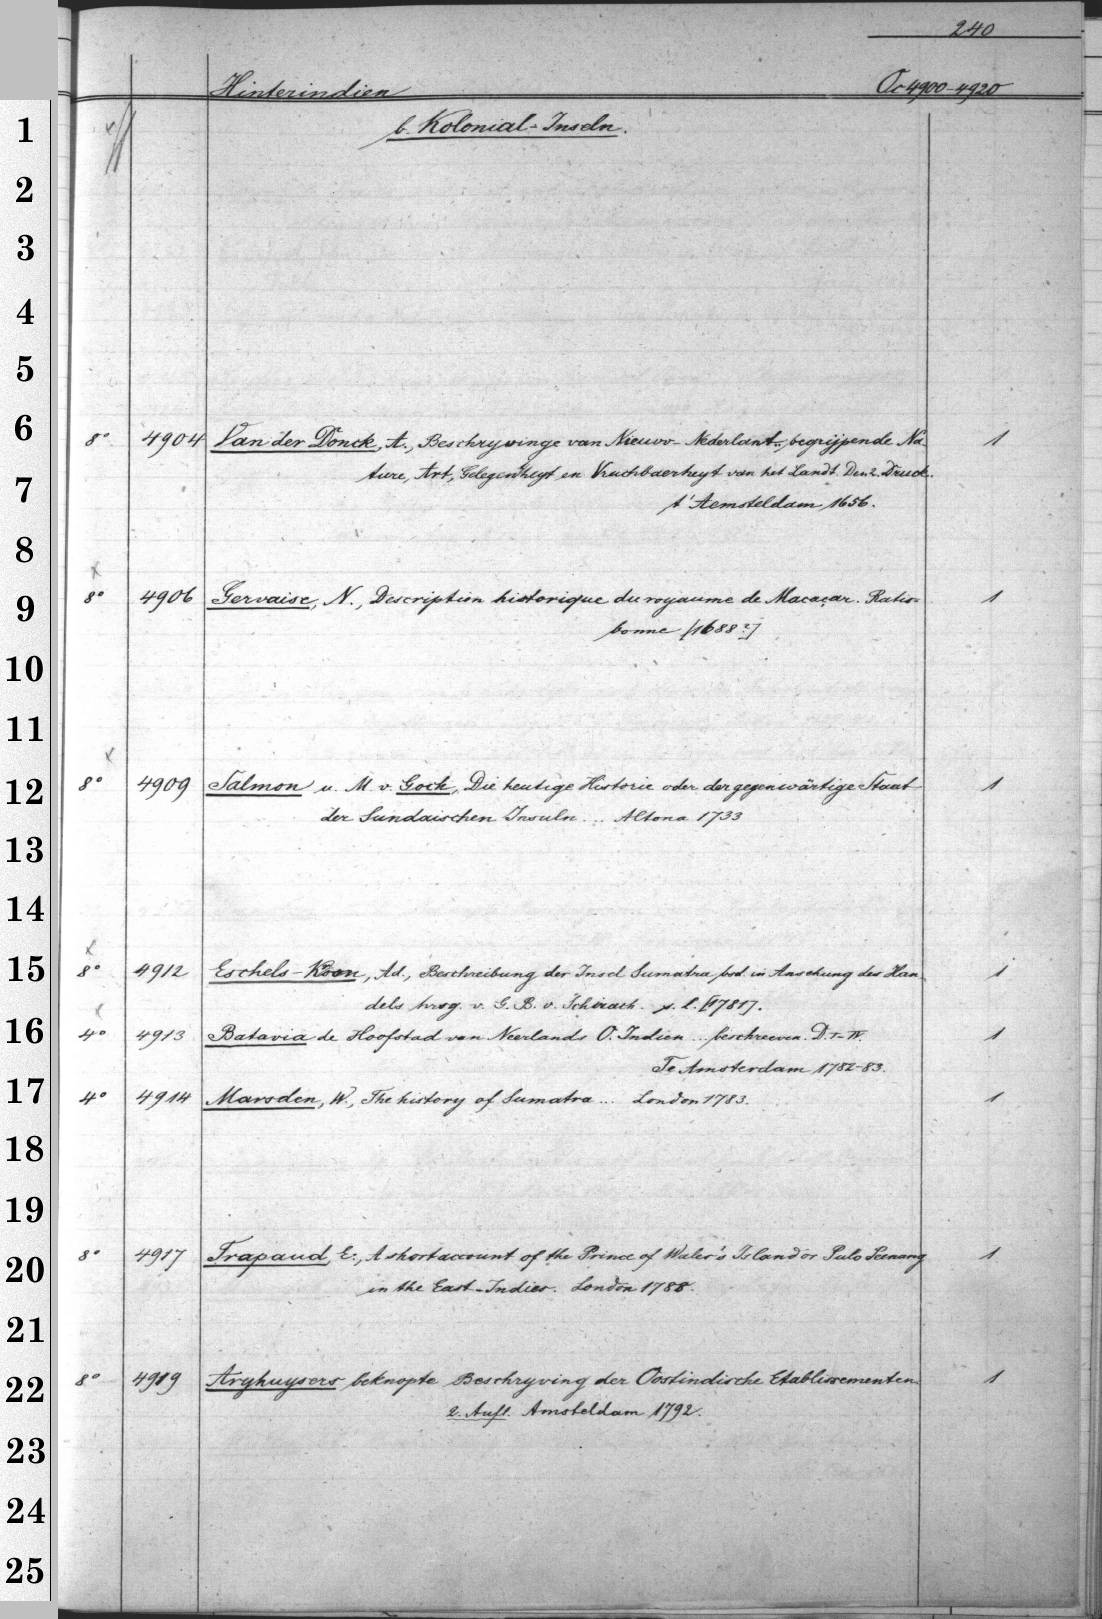 240
Hinterindien Oc 4900-4920
1 b. Kolonial-Inseln.
2
3
4
5
6 8° 4904 Van der Donck, A., Beschryvinge van Nieuw-Nederlant.., begrijpende Na- 1
ture, Art, Gelegentheyt en Vruchbaerheyt van het Landt. Den 2. Druck.
7
t'Aemsteldam 1656.
8
9 8° 4906 Gervaise, N., Description historique du royaume de Macaçar. Ratis- 1
bonne [1688?]
10
11
12 8° 4909 Salmon u. M. v. Goch, Die heutige Historie oder der gegenwärtige Staat 1
der Sundaischen Insuln ... Altona 1733
13
14
15 8° 4912 Eschels-Kroon, Ad., Beschreibung der Insel Sumatra bsd. in Ansehung des Han- 1
dels hrsg. v. G. B. v. Schirach. s. l. [1781].
16 4° 4913 Batavia de Hoofstad van Neerlands O. Indien ... beschreeven. D. I-IV. 1
Te Amsterdam 1782-83.
17 4° 4914 Marsden, W., The history of Sumatra ... London 1783. 1
18
19
20 8° 4917 Trapaud, E., A short account of the Prince of Wales's Island or Pulo Penang 1
in the East-Indies. London 1788.
21
22 8° 4919 Aryhuysers beknopte Beschryving der Oostindische Etablissementen 1
2. Aufl. Amsteldam 1792.
23
24
25